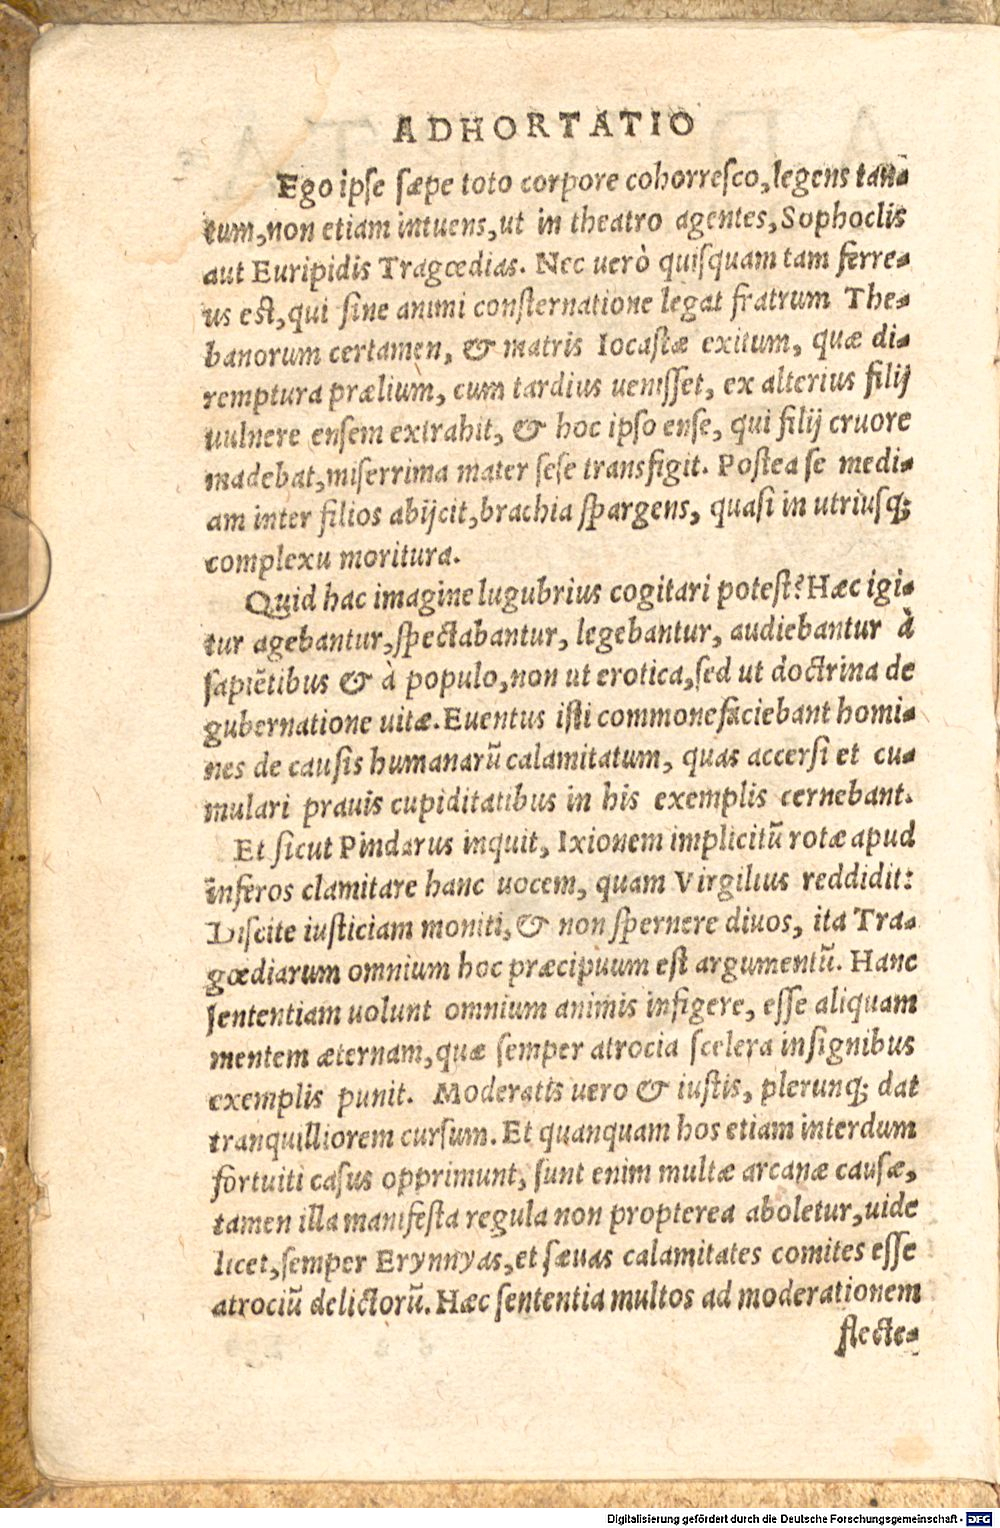 ADHORTATIO
Ego ipse sæpe toto corpore cohorresco, legens tan-
tum, non etiam intuens, ut in theatro agentes, Sophoclis
aut Euripidis Tragœdias. Nec uerò quisquam tam ferre-
us est, qui sine animi consternatione legat fratrum The-
banorum certamen, & matris Iocastæ exitum, quæ di-
remptura prælium, cum tardius uenisset, ex alterius filij
uulnere ensem extrahit, & hoc ipso ense, qui filij cruore
madebat, miserrima mater sese transfigit. Postea se medi-
am inter filios abijcit, brachia spargens, quasi in utriusq;
complexu moritura.
Quid hac imagine lugubrius cogitari potest? Hæc igi-
tur agebantur, spectabantur, legebantur, audiebantur à
sapiẽtibus & à populo, non ut erotica, sed ut doctrina de
gubernatione uitæ. Euentus isti commonefaciebant homi-
nes de causis humanarũ calamitatum, quas accersi et cu-
mulari prauis cupiditatibus in his exemplis cernebant.
Et sicut Pindarus inquit, Ixionem implicitũ rotæ apud
inferos clamitare hanc uocem, quam Virgilius reddidit:
Discite iusticiam moniti, & non spernere diuos, ita Tra-
gœdiarum omnium hoc præcipuum est argumentũ. Hanc
sententiam uolunt omnium animis infigere, esse aliquam
mentem æternam, quæ semper atrocia scelera insignibus
exemplis punit. Moderatis uero & iustis, plerunq; dat
tranquilliorem cursum. Et quanquam hos etiam interdum
fortuiti casus opprimunt, sunt enim multæ arcanæ causæ,
tamen illa manifesta regula non propterea aboletur, uide
licet, semper Erynnyas, et sæuas calamitates comites esse
atrociũ delictorũ. Hæc sententia multos ad moderationem
flecte-
Digitalisierung gefördert durch die Deutsche Forschungsgemeinschaft - DFG